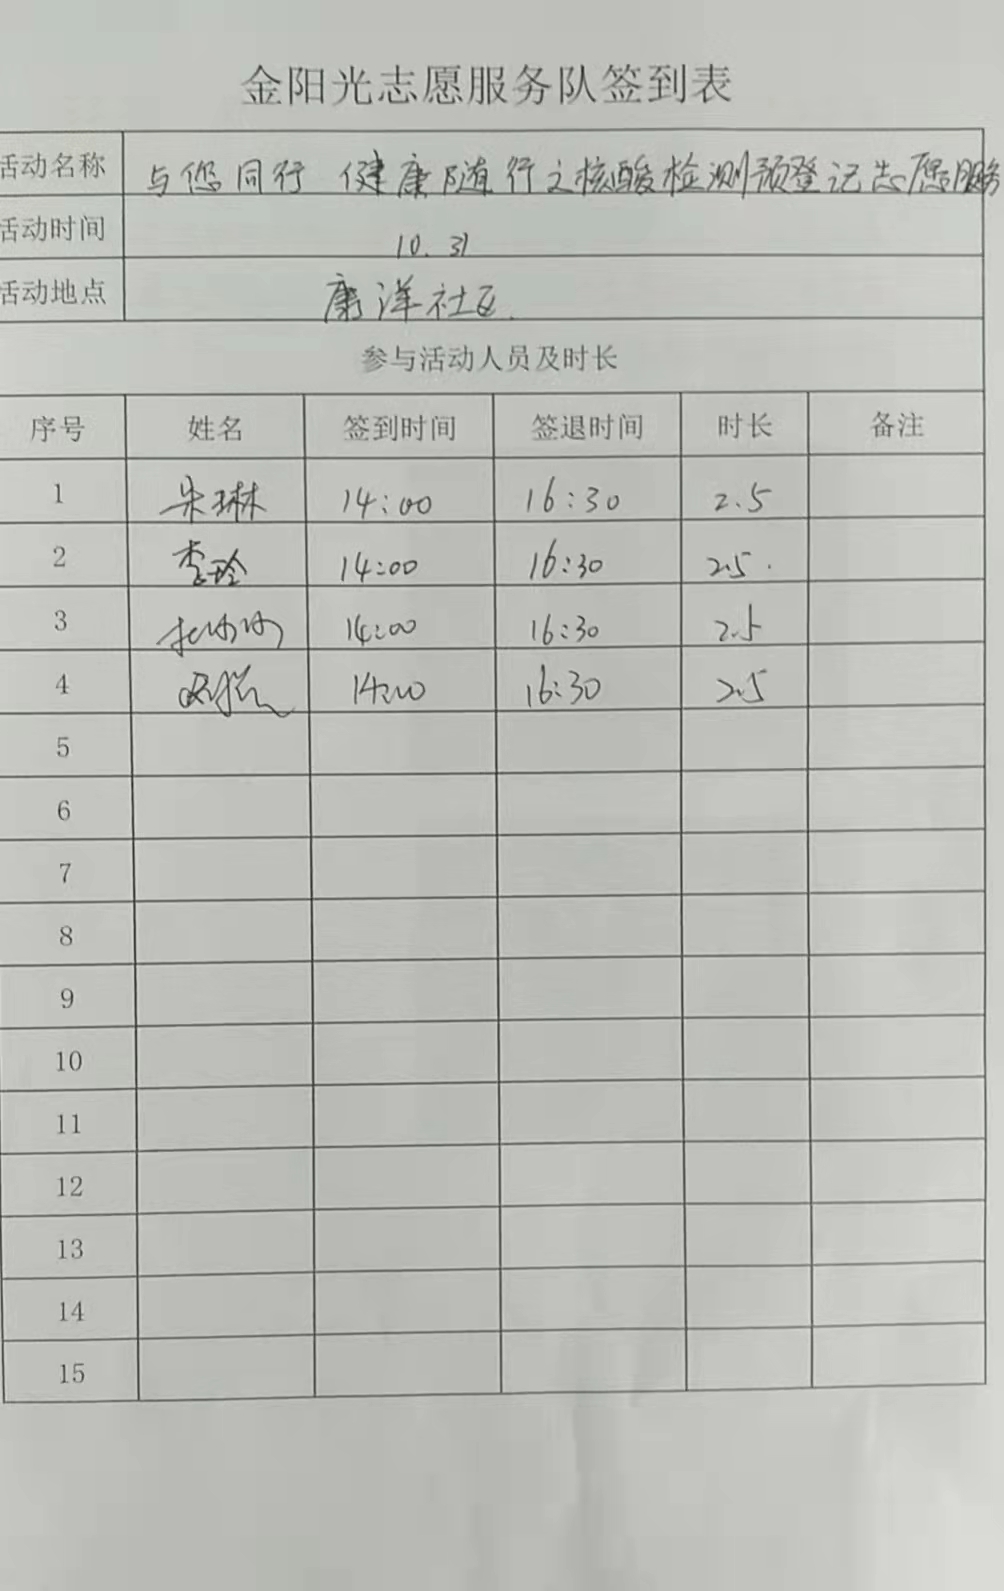 金阳光志愿服务队签到表
活动名称 与您同行 健康随行之核酸检测预登记志愿服务
活动时间 10.31
活动地点 康洋社区
参与活动人员及时长
序号 姓名 签到时间 签退时间 时长 备注
1 朱琳 14:00 16:30 2.5
2 李玲 14:00 16:30 2.5
3 14:00 16:30 2.5
4 14:00 16:30 2.5
5
6
7
8
9
10
11
12
13
14
15